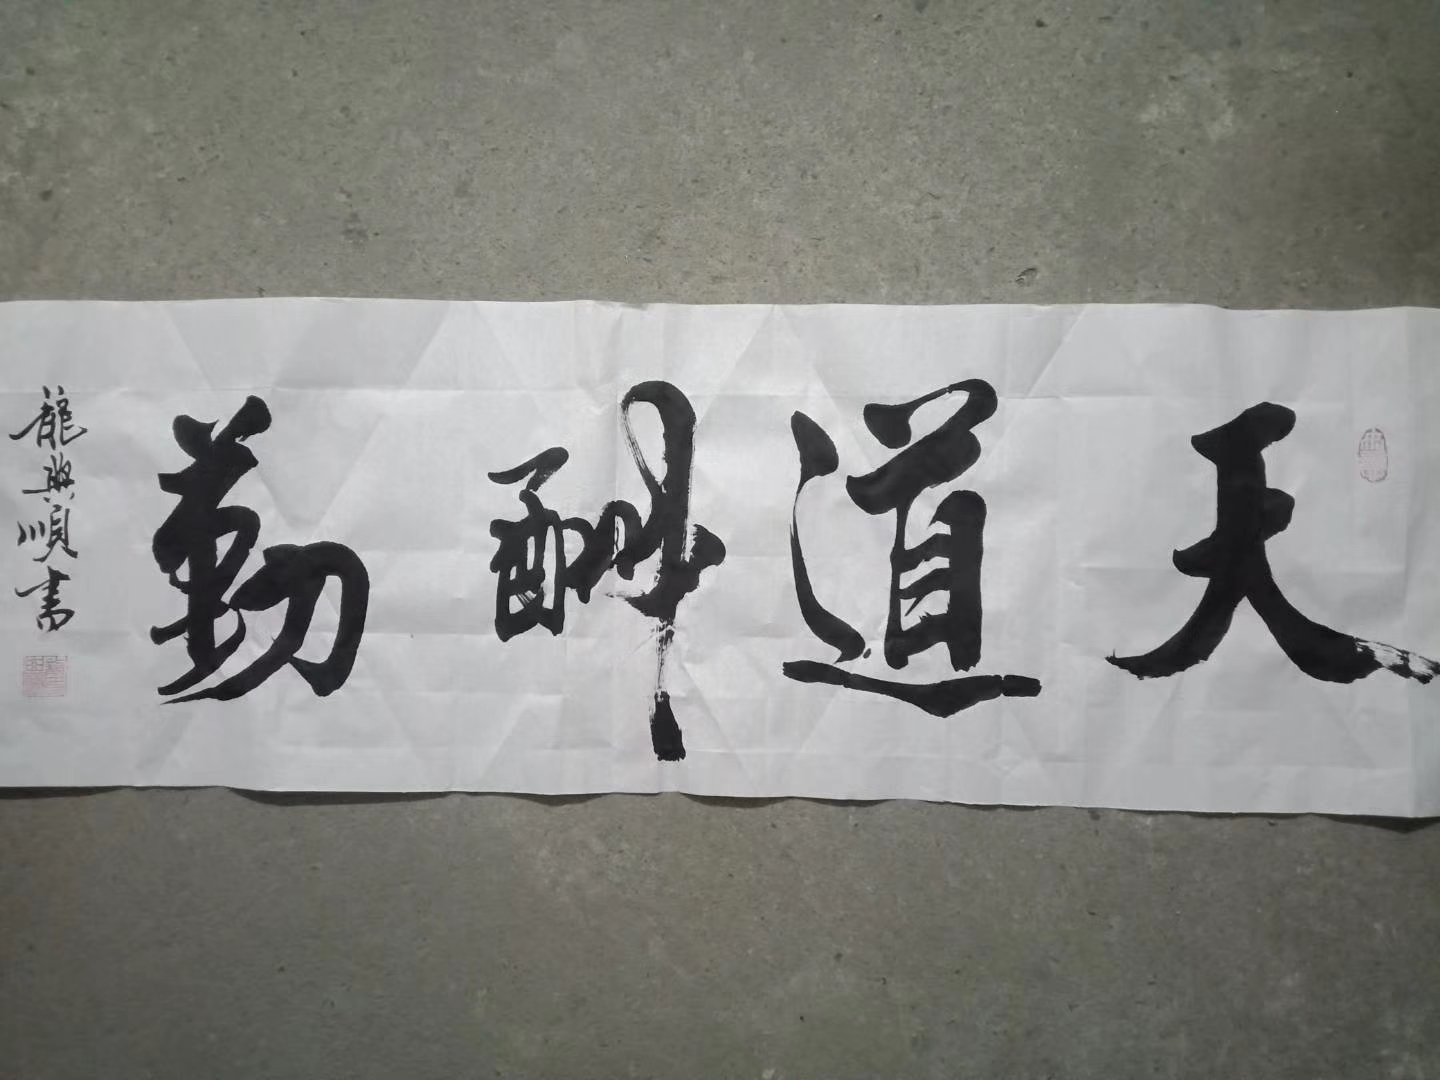 天道酬勤
龍興順書